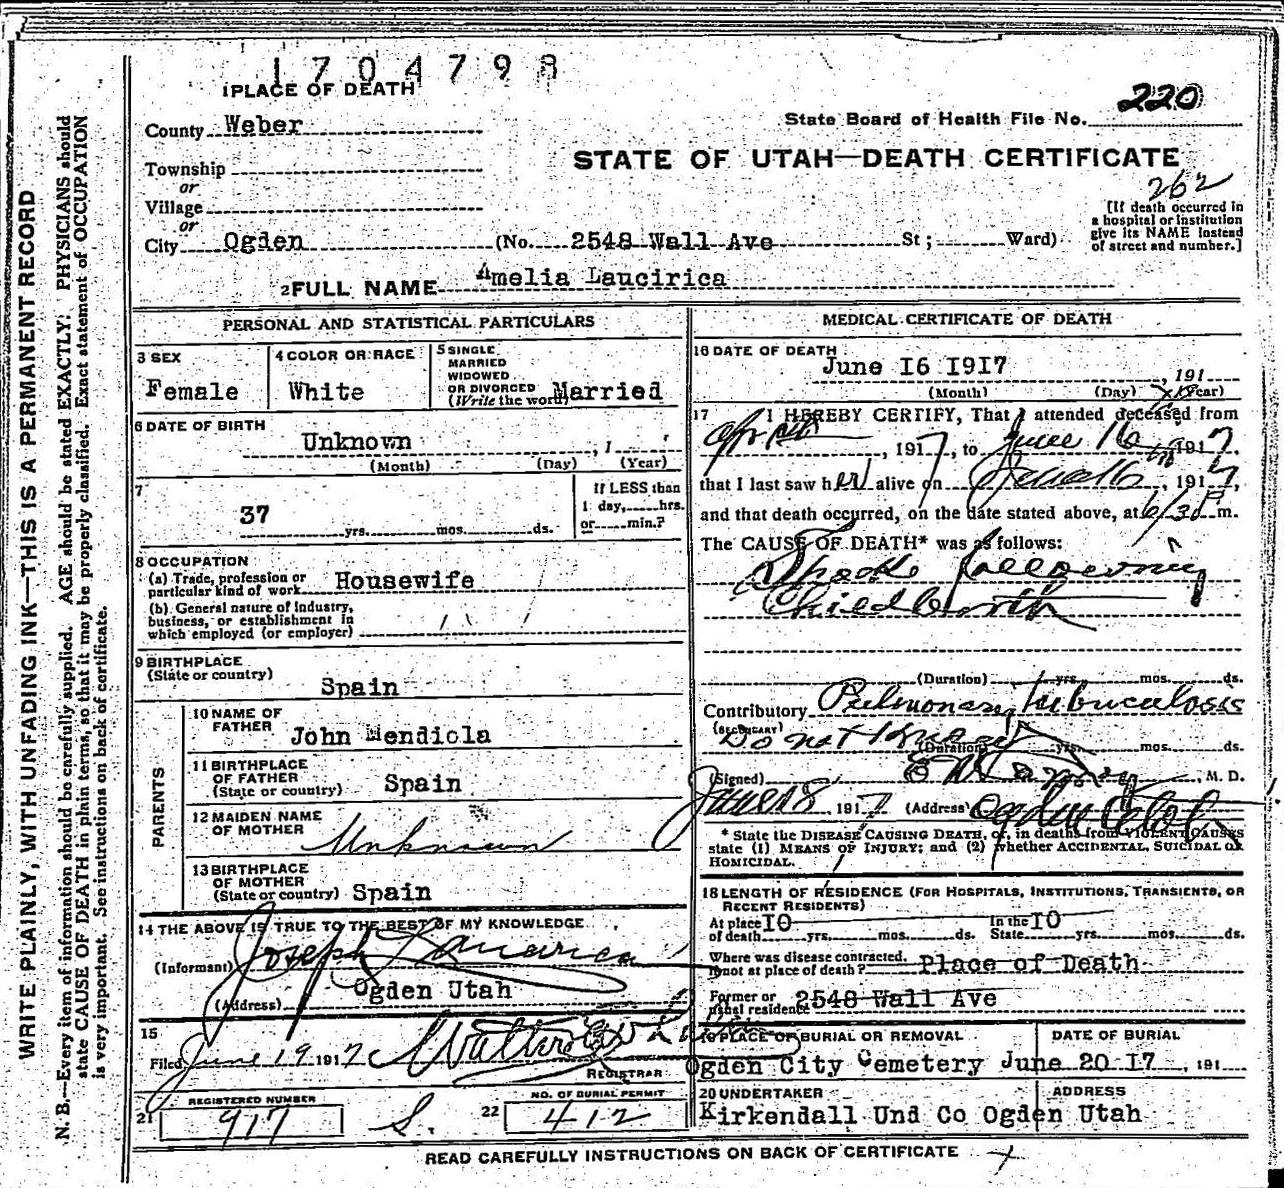 1704798
1 PLACE OF DEATH
County Weber
State Board of Health File No. 220
STATE OF UTAH—DEATH CERTIFICATE
Township
or
Village
or
262
[If death occurred in
a hospital or institution
give its NAME instead
of street and number.]
City Ogden (No. 2548 Wall Ave St; Ward)
2 FULL NAME Amelia Laucirica
PERSONAL AND STATISTICAL PARTICULARS
3 SEX
Female
4 COLOR OR RACE
White
5 SINGLE
MARRIED
WIDOWED
OR DIVORCED
(Write the word) Married
6 DATE OF BIRTH
Unknown , 1
(Month) (Day) (Year)
7
37 yrs. mos. ds.
If LESS than
1 day, hrs.
or min.?
8 OCCUPATION
(a) Trade, profession or
particular kind of work Housewife
(b) General nature of industry,
business, or establishment in
which employed (or employer)
9 BIRTHPLACE
(State or country)
Spain
PARENTS
10 NAME OF
FATHER
John Mendiola
11 BIRTHPLACE
OF FATHER
(State or country) Spain
12 MAIDEN NAME
OF MOTHER
Unknown
13 BIRTHPLACE
OF MOTHER
(State or country) Spain
14 THE ABOVE IS TRUE TO THE BEST OF MY KNOWLEDGE
(Informant) Joseph Laucirica
(Address) Ogden Utah
15
Filed June 19 1917
REGISTRAR
REGISTERED NUMBER
21 917 S.
NO. OF BURIAL PERMIT
22 412
MEDICAL CERTIFICATE OF DEATH
16 DATE OF DEATH
June 16 1917 , 191
(Month) (Day) (Year)
17 I HEREBY CERTIFY, That I attended deceased from
, 1917, to June 16 1917
that I last saw her alive on June 16, 1917,
and that death occurred, on the date stated above, at 6/30 P m.
The CAUSE OF DEATH* was as follows:
Shock following
Childbirth
(Duration) yrs. mos. ds.
Contributory Pulmonary tuberculosis
(SECONDARY) Do not know
(Duration) yrs. mos. ds.
(Signed) , M. D.
June 18 1917 (Address) Ogden Utah
* State the DISEASE CAUSING DEATH, or, in deaths from VIOLENT CAUSES
state (1) MEANS OF INJURY; and (2) whether ACCIDENTAL, SUICIDAL OR
HOMICIDAL.
18 LENGTH OF RESIDENCE (FOR HOSPITALS, INSTITUTIONS, TRANSIENTS, OR
RECENT RESIDENTS)
At place
of death 10 yrs. mos. ds. In the
State 10 yrs. mos. ds.
Where was disease contracted,
if not at place of death? Place of Death
Former or
usual residence 2548 Wall Ave
19 PLACE OF BURIAL OR REMOVAL
DATE OF BURIAL
Ogden City Cemetery June 20 17 , 191
20 UNDERTAKER
ADDRESS
Kirkendall Und Co Ogden Utah
READ CAREFULLY INSTRUCTIONS ON BACK OF CERTIFICATE
WRITE PLAINLY, WITH UNFADING INK—THIS IS A PERMANENT RECORD
N. B.—Every item of information should be carefully supplied. AGE should be stated EXACTLY. PHYSICIANS should
state CAUSE OF DEATH in plain terms, so that it may be properly classified. Exact statement of OCCUPATION
is very important. See instructions on back of certificate.